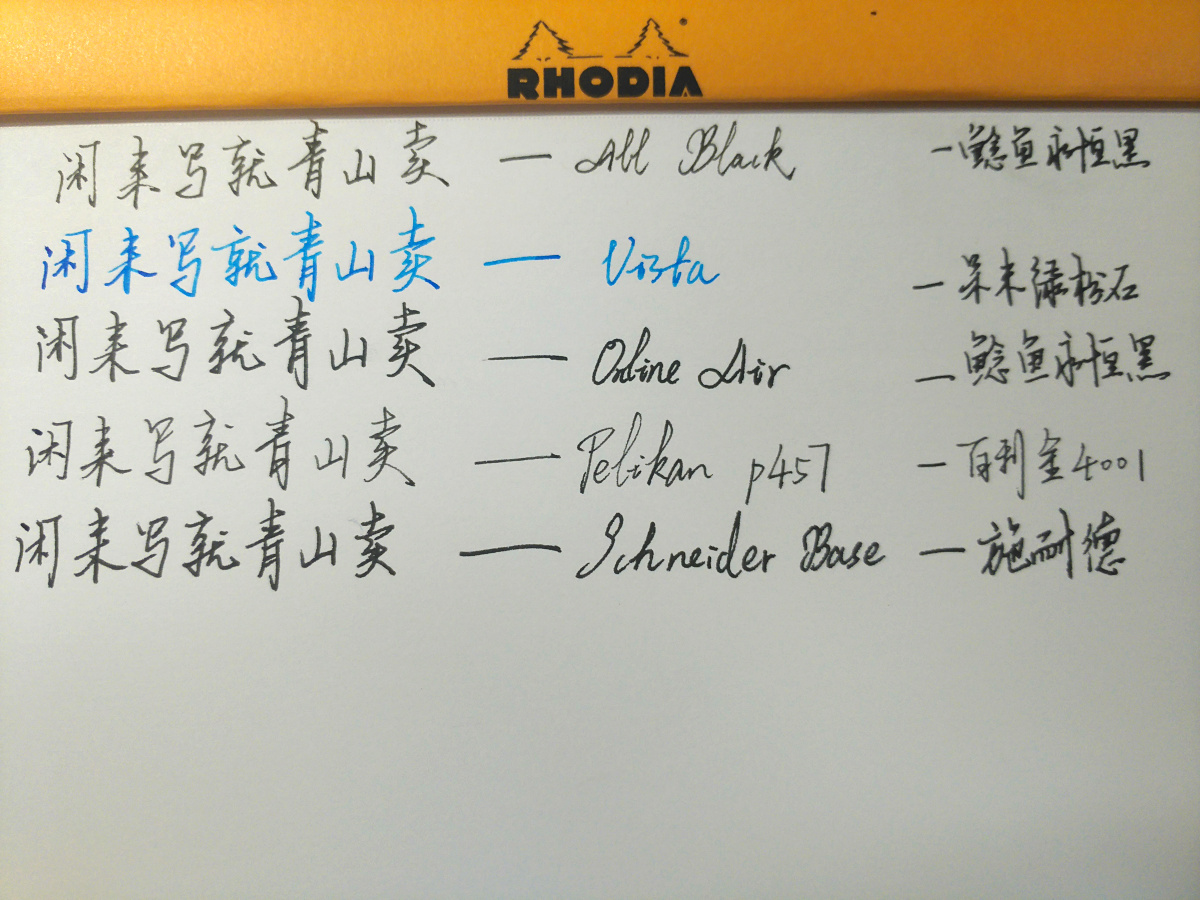 RHODIA
闲来写就青山卖 — All Black — 鲶鱼永恒黑
闲来写就青山卖 — Vista — 呆末绿松石
闲来写就青山卖 — Online Air — 鲶鱼永恒黑
闲来写就青山卖 — Pelikan p457 — 百利金4001
闲来写就青山卖 — Schneider Base — 施耐德